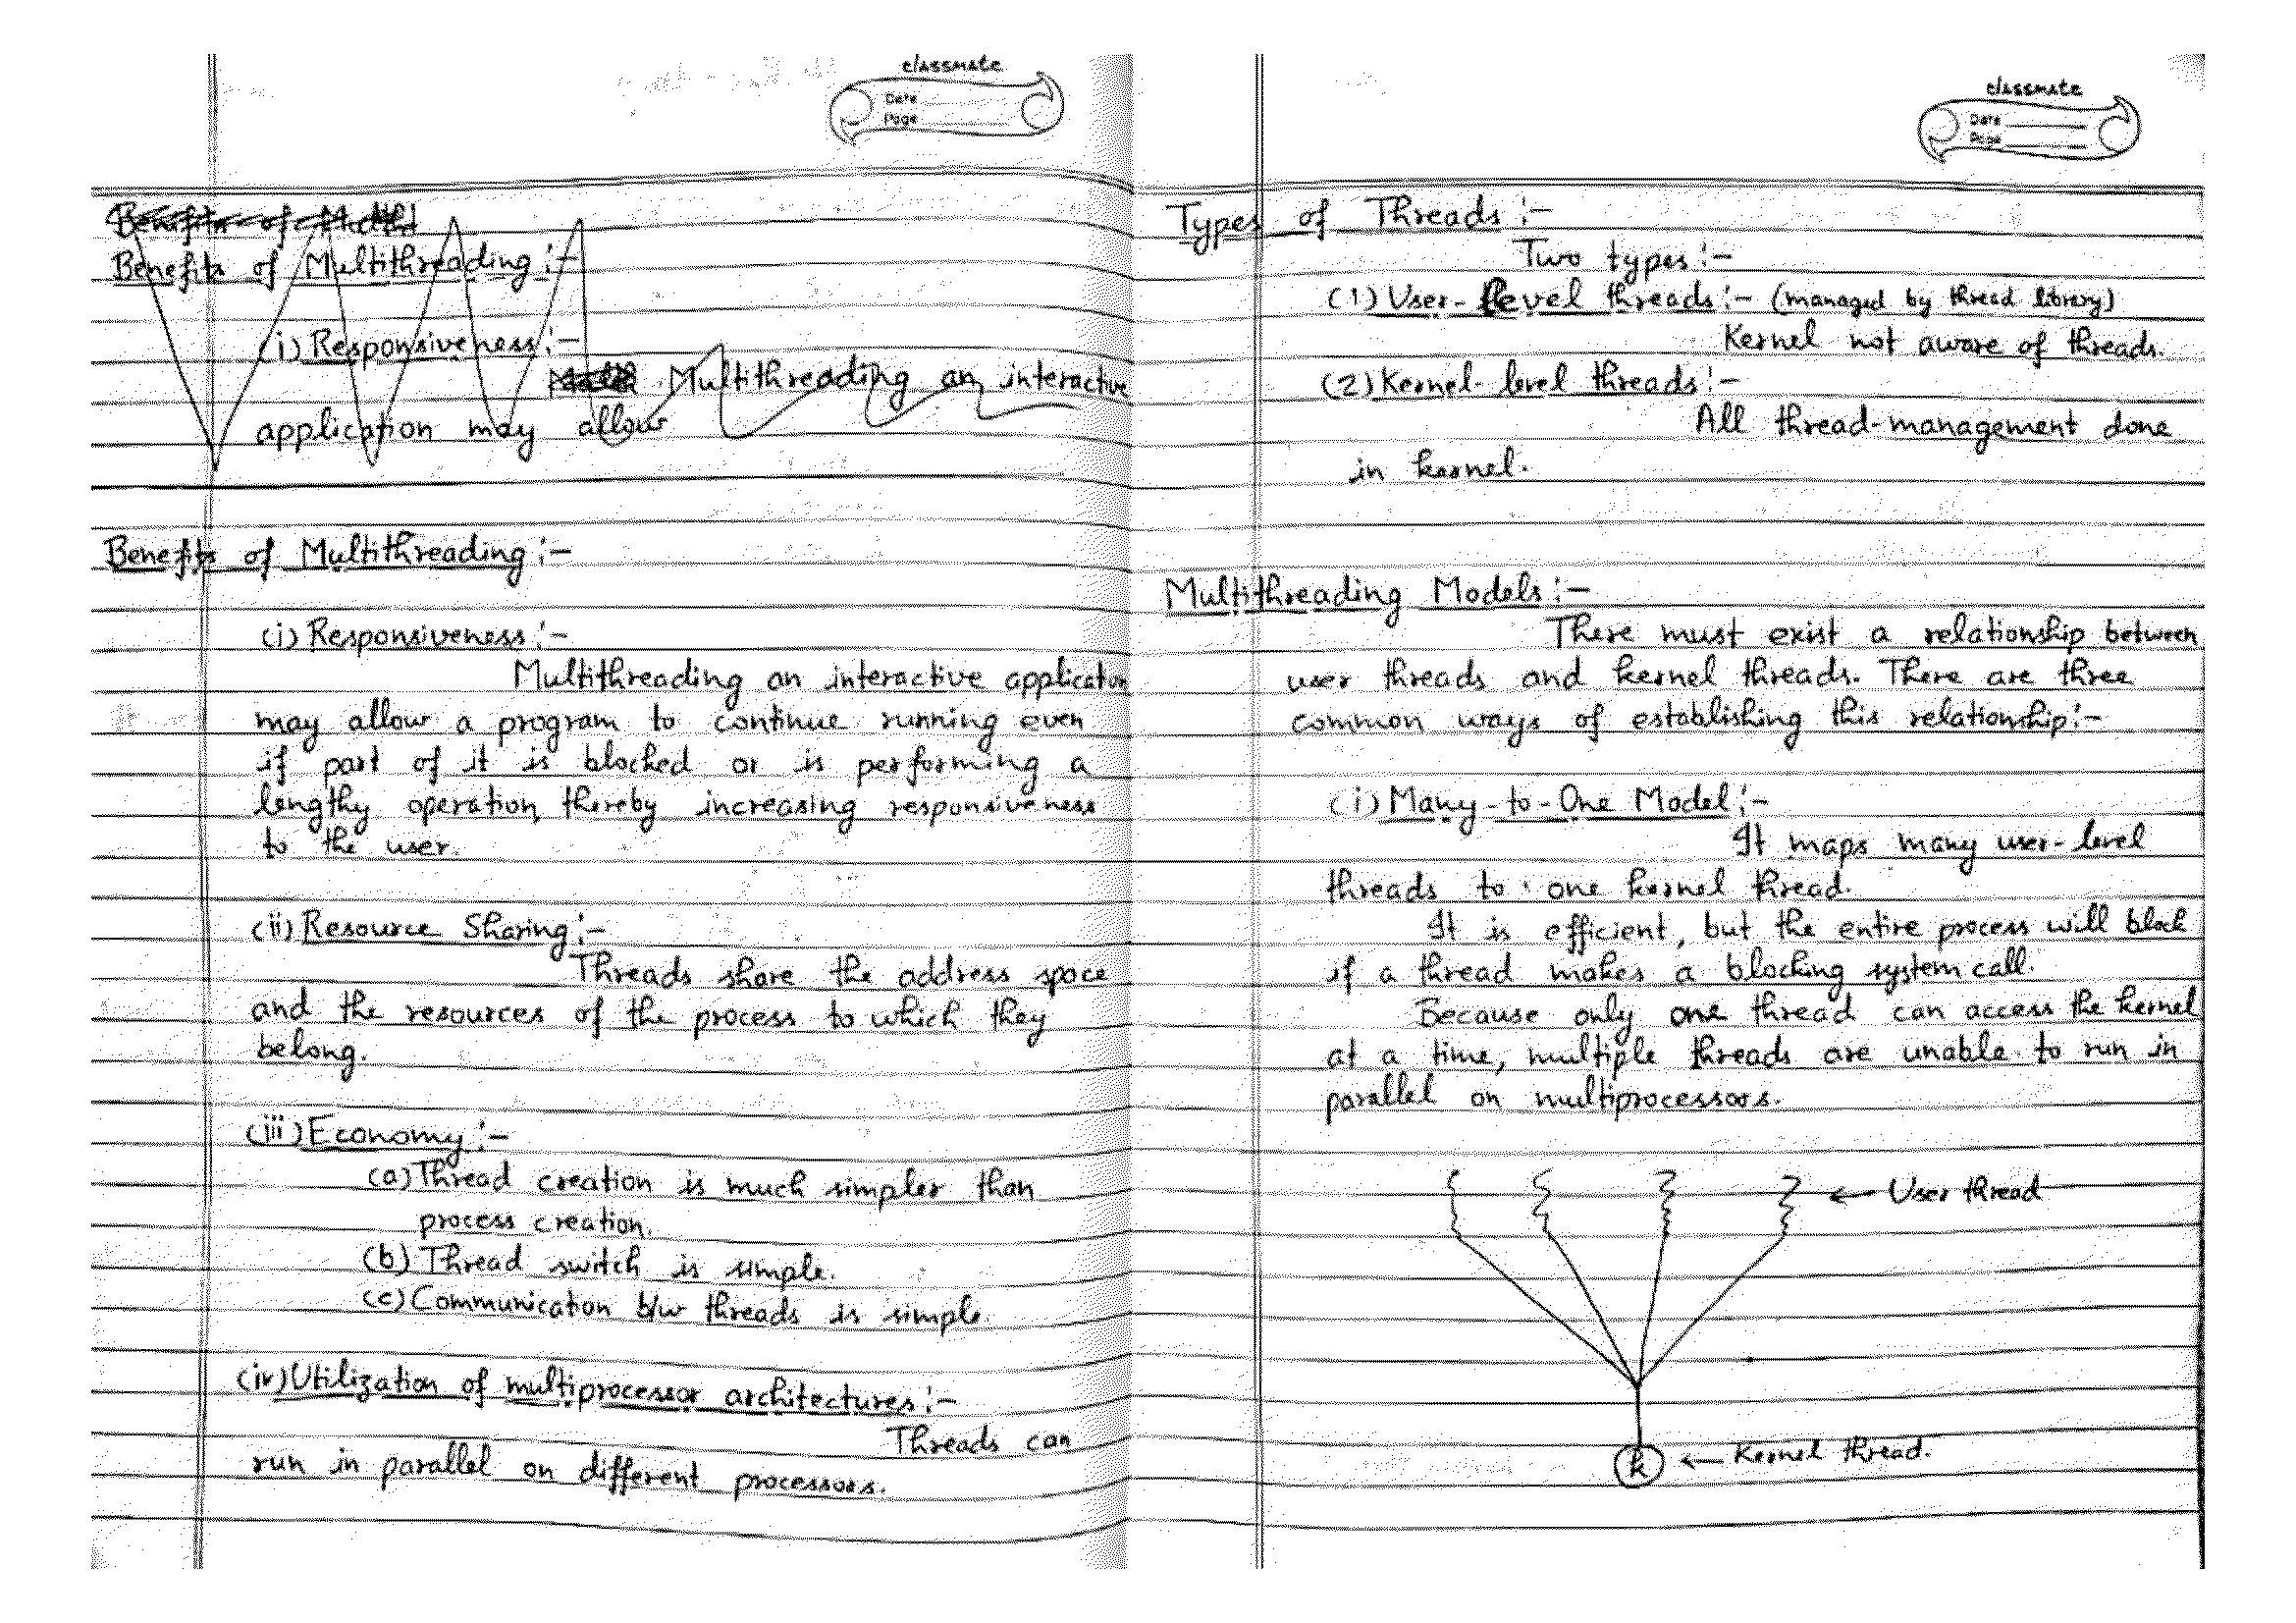 classmate
Date
Page
Benefits of Multi
Benefits of Multithreading :-
(i) Responsiveness :-
Multithreading an interactive
application may allow
Benefits of Multithreading :-
(i) Responsiveness :-
Multithreading an interactive application
may allow a program to continue running even
if part of it is blocked or is performing a
lengthy operation, thereby increasing responsiveness
to the user.
(ii) Resource Sharing :-
Threads share the address space
and the resources of the process to which they
belong.
(iii) Economy :-
(a) Thread creation is much simpler than
process creation.
(b) Thread switch is simple.
(c) Communication b/w threads is simple.
(iv) Utilization of multiprocessor architectures :-
Threads can
run in parallel on different processors.
classmate
Date
Page
Types of Threads :-
Two types :-
(1) User-level threads :- (managed by thread library)
Kernel not aware of threads.
(2) Kernel-level threads :-
All thread-management done
in kernel.
Multithreading Models :-
There must exist a relationship between
user threads and kernel threads. There are three
common ways of establishing this relationship :-
(i) Many-to-One Model :-
It maps many user-level
threads to one kernel thread.
It is efficient, but the entire process will block
if a thread makes a blocking system call.
Because only one thread can access the kernel
at a time, multiple threads are unable to run in
parallel on multiprocessors.
← User thread
k ← Kernel thread.